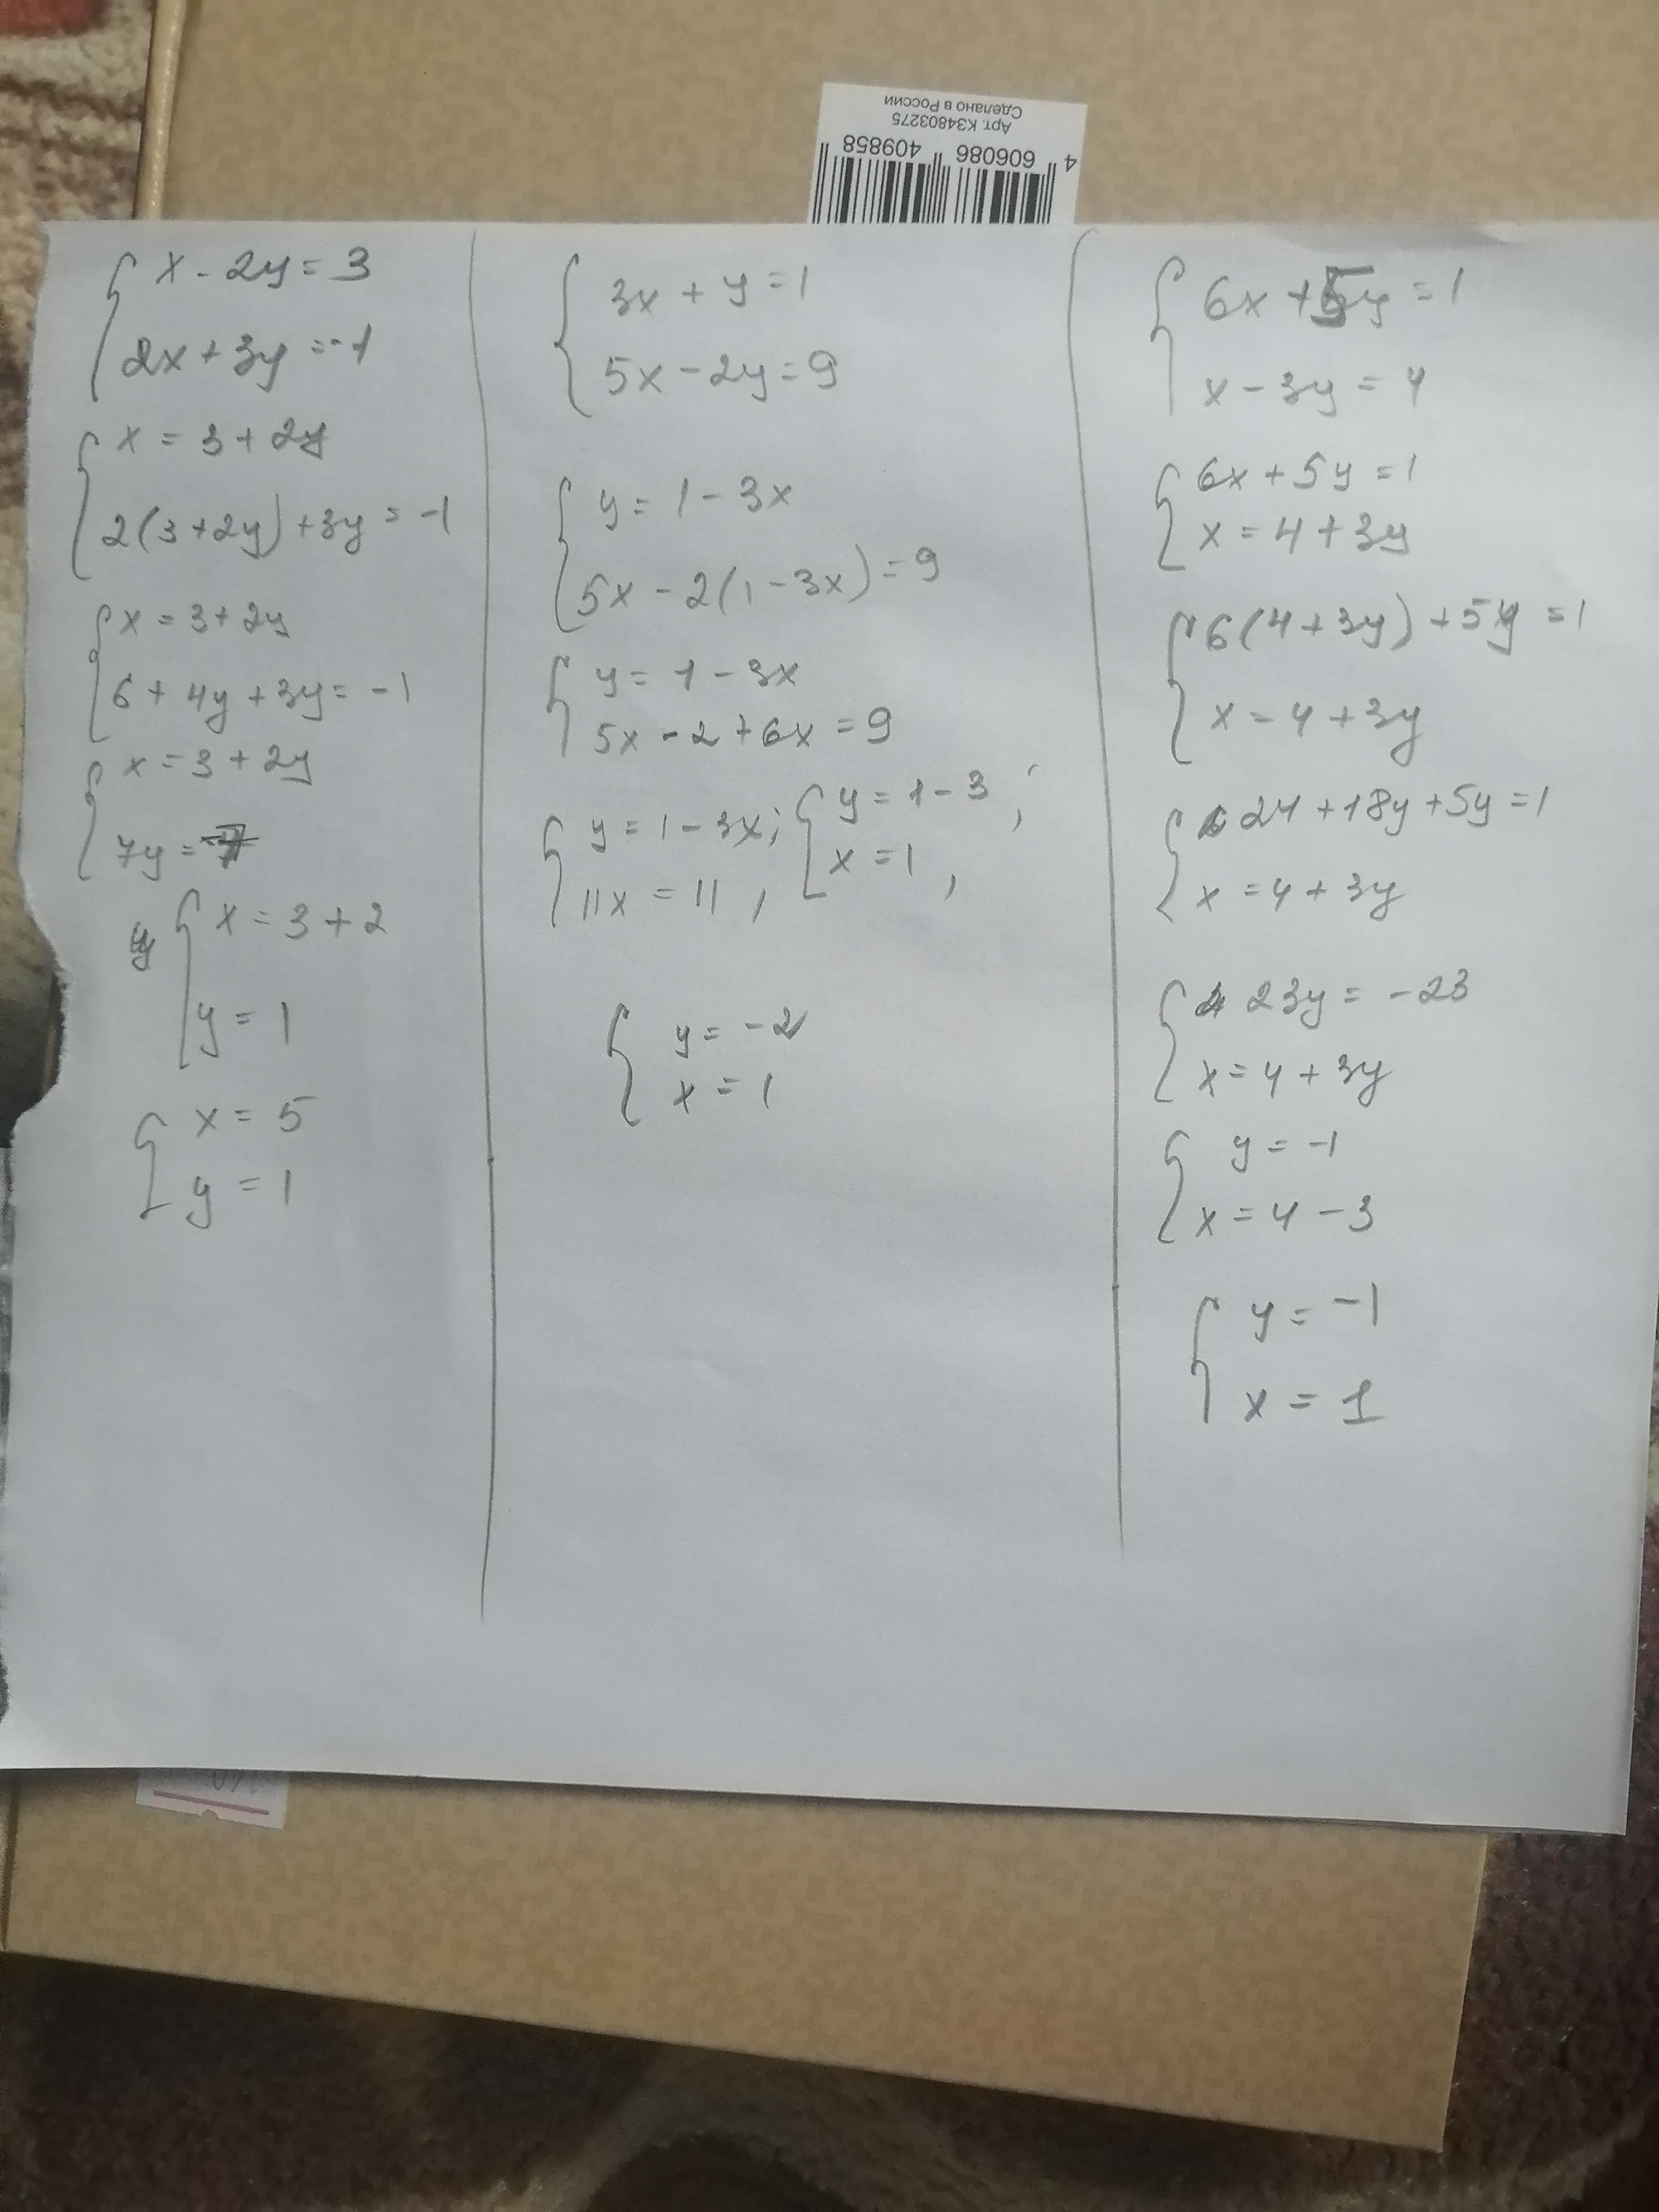 Сделано в России
Арт. К34803275
4 606086 409858
x - 2y = 3
2x + 3y = -1
x = 3 + 2y
2(3 + 2y) + 3y = -1
x = 3 + 2y
6 + 4y + 3y = -1
x = 3 + 2y
7y = -7
y x = 3 + 2
y = 1
x = 5
y = 1
3x + y = 1
5x - 2y = 9
y = 1 - 3x
5x - 2(1 - 3x) = 9
y = 1 - 3x
5x - 2 + 6x = 9
y = 1 - 3x; y = 1 - 3;
11x = 11, x = 1,
y = -2
x = 1
6x + 5y = 1
x - 3y = 4
6x + 5y = 1
x = 4 + 3y
6(4 + 3y) + 5y = 1
x = 4 + 3y
24 + 18y + 5y = 1
x = 4 + 3y
23y = -23
x = 4 + 3y
y = -1
x = 4 - 3
y = -1
x = 1